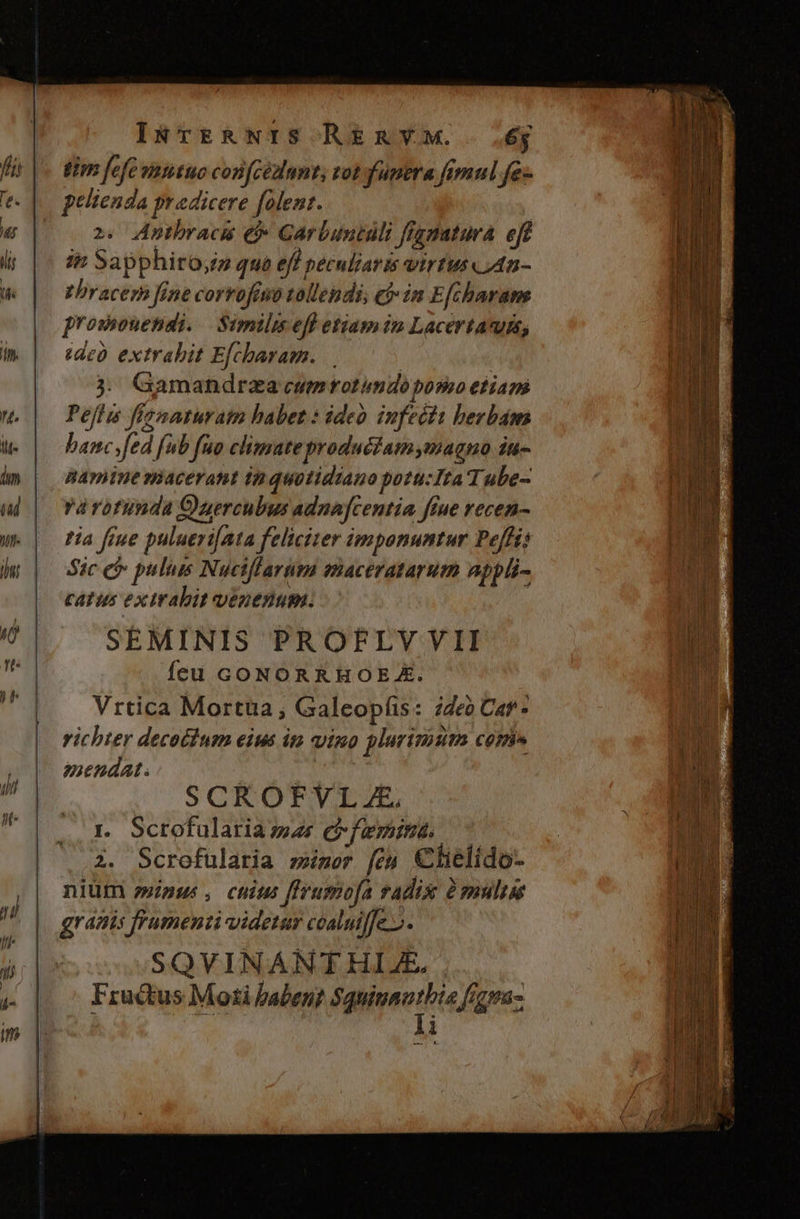 INTERNIS RERVM. 65
tim ſeſe mutuo conſcedunt, tot funera ſimul ſe-
pelienda prædicere ſolent.
2. Anthracis & Carbunculi ſignatura eſt
in Sapphiro, in quo eſt peculiaris virtus An-
thracem ſine corroſiuo tollendi, & in Eſcharam
promouendi. Similis eſt etiam in Lacerta viſ,
ideò extrahit Eſcharam.
3. Gamandræa cum rotundo pomo etiam
Peſtis ſignaturam habet: ideò infecti herbam
hanc, ſed ſub ſuo climate productam, magno iu-
uamine macerant in quotidiano potu: Ita Tube-
ra rotunda Quercubus adnaſcentia ſiue recen-
tia ſiue pulueriſata feliciter imponuntur Peſti:
Sic & puluis Nuciſtarum maceratarum appli-
catus extrahit venenum.
SEMINIS PROFLVVII
ſeu GONORRHOEÆ.
Vrtica Mortua, Galeopſis: ideò Car-
richter decoctum eius in vino plurimùm com-
mendat.
SCROFVLÆ.
1. Scrofularia mas & fœmina.
2. Scrofularia minor ſeu Chelido-
nium minus, cuius ſtrumoſa radix è multis
granis frumenti videtur coaluiſſe.
SQVINANTHIÆ.
Fructus Mori habent Squinanthiæ ſigna-
Ii